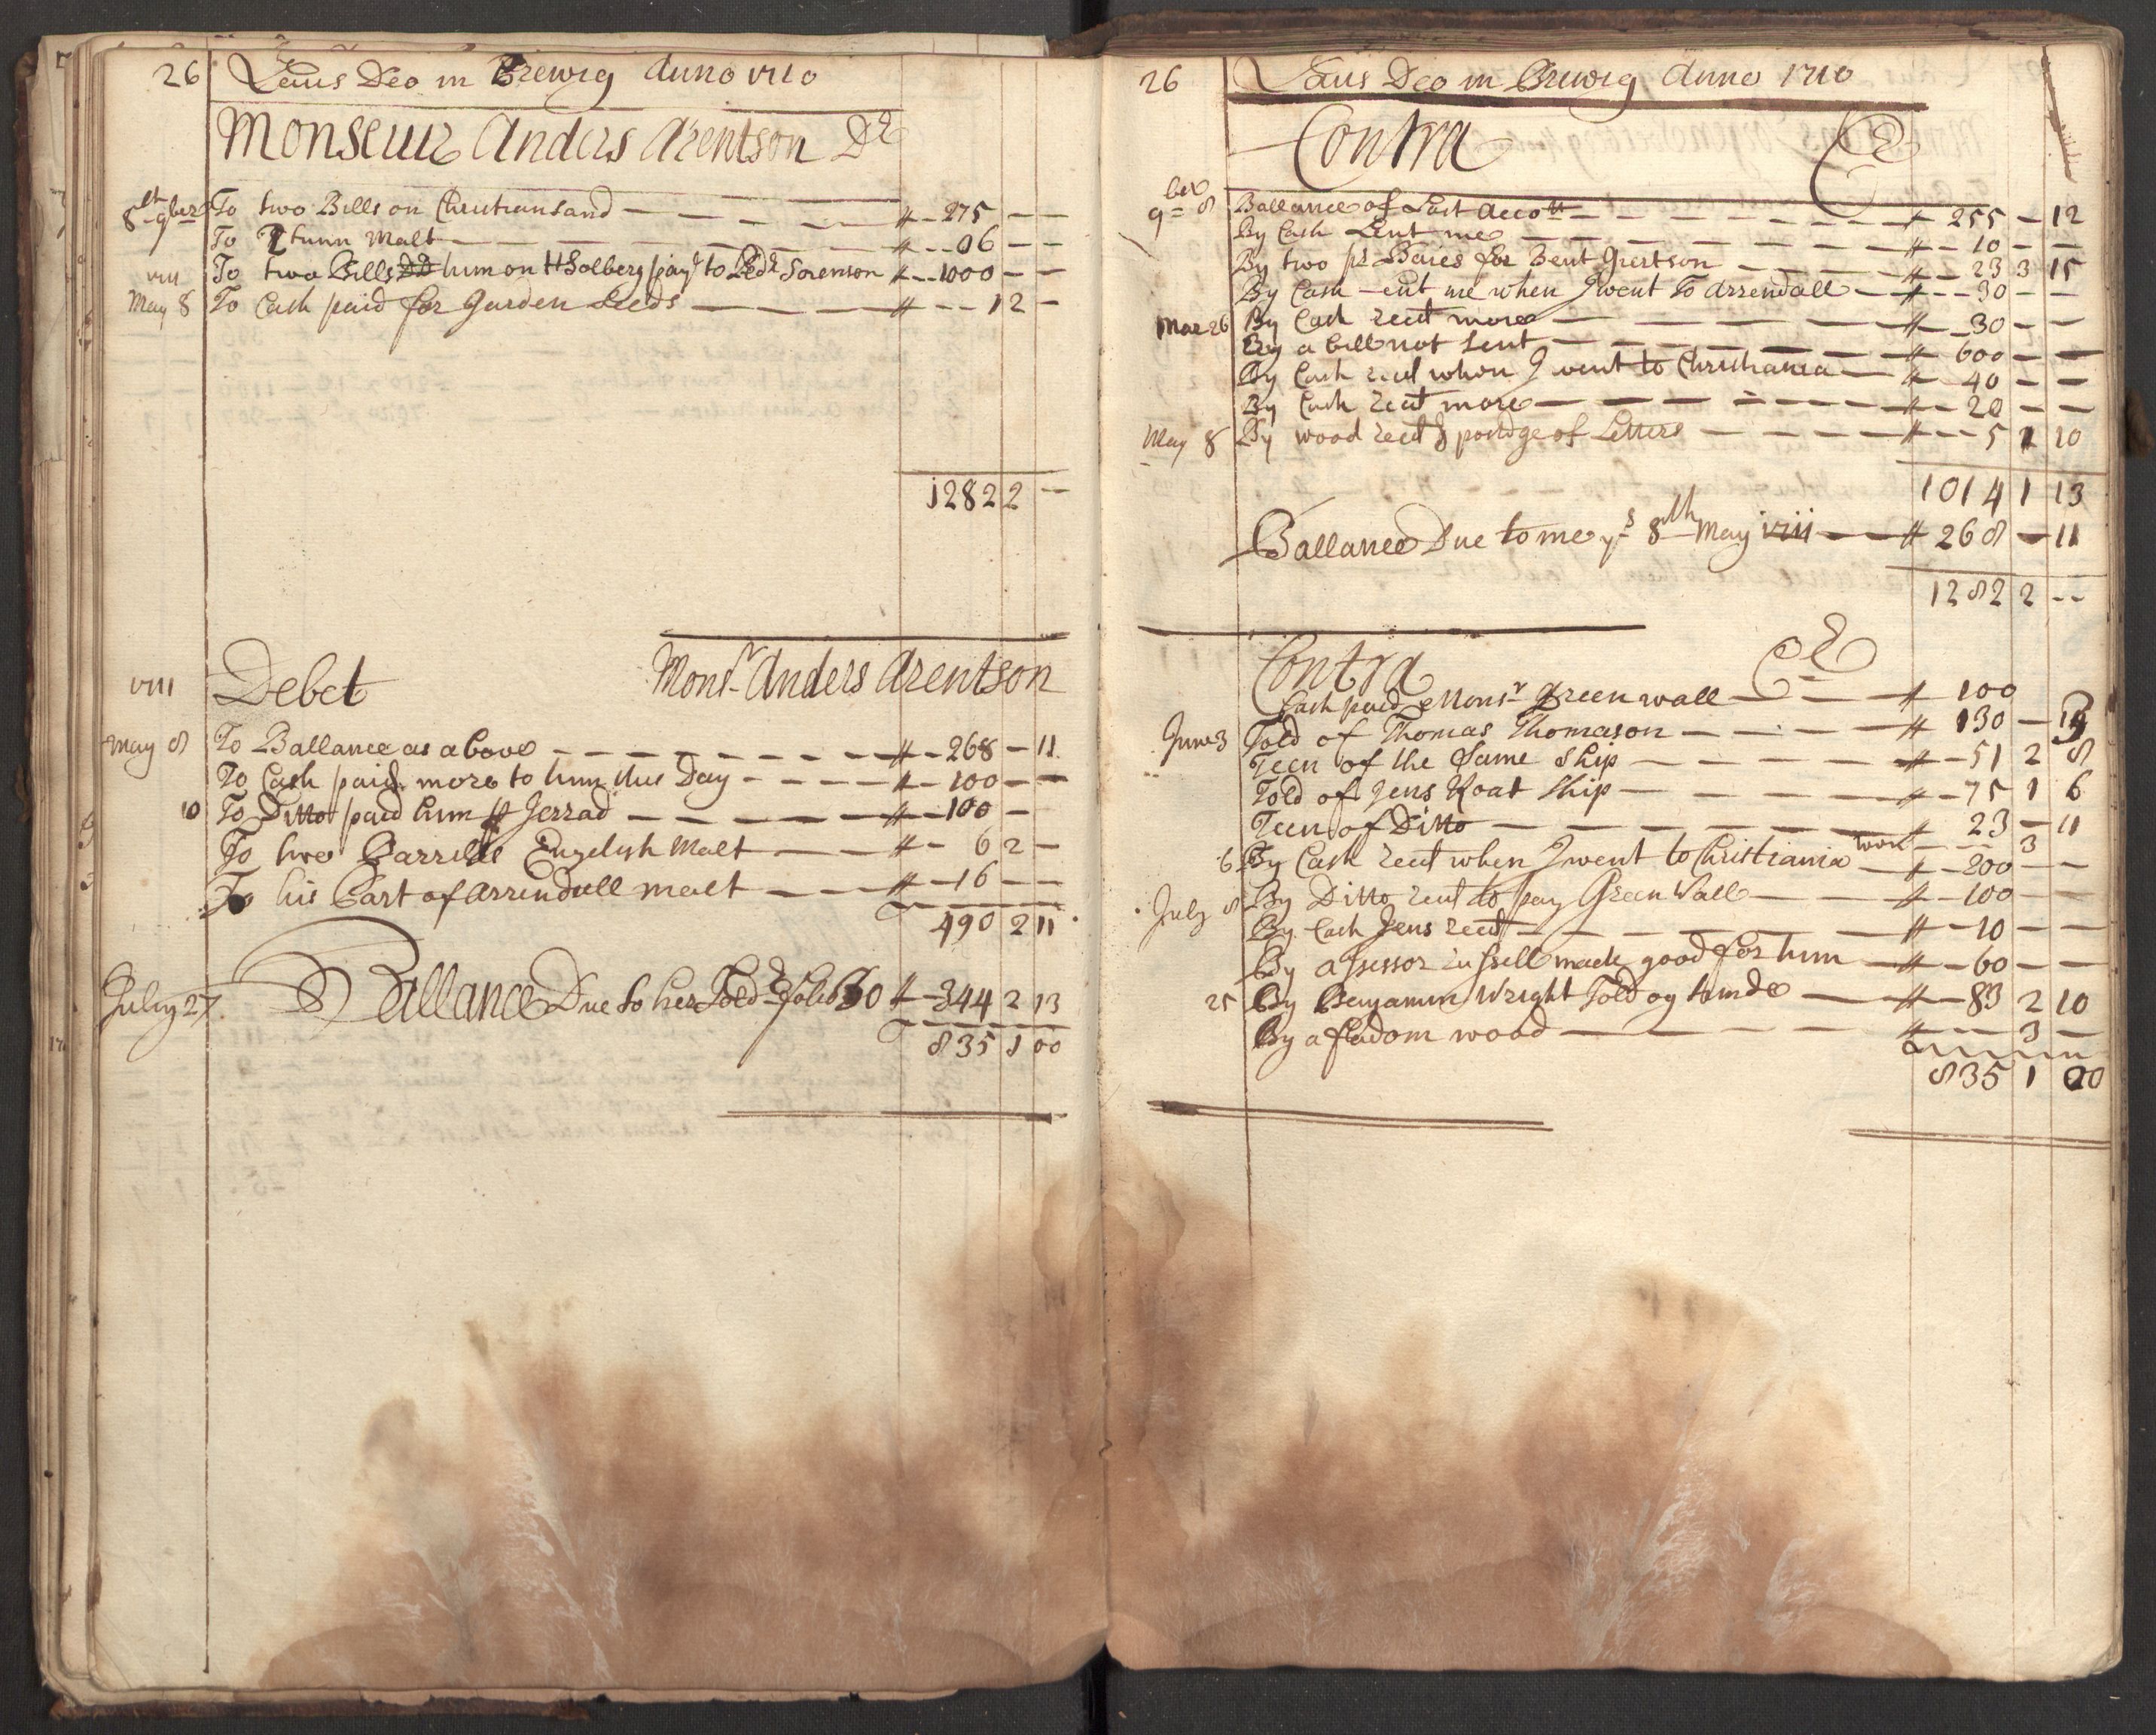 26 Laus Deo in Brewig Anno 1710
Monseuir Anders Arentson Dr
8th 9ber To two Bills on Christiansand — # - 275 — —
To 2 tunn Malt — # - - 06 — —
1711 To two Bills him on H Solberg pay to Pedr Sorenson # - - 1000 — —
May 8 To Cash paid for Garden Seeds — # - - - 1 2 —
1282 2 —
1711 Debet Monsr Anders Arentson
May 8 To Ballance as above — # - 268 — 11
To Cash paid more to him this Day — # - 100 — —
10 To Ditto paid him Jerrad — # - 100 —
To two Barrills Engelish Malt — # - 6 2 —
To his Part of Arrendall malt — # - 16 — —
490 2 11
July 27 Ballance Due to her folio 30 # - 344 2 13
835 1 00
26 Laus Deo in Brewig Anno 1710
Contra Cr
9ber 8 Ballance of Last Accott — # 255 — 12
By Cash Lent me — # - 10 — —
By two ps Baies for Bent Giertson — # - 23 3 15
By Cash ent me when I went to Arrendall — # - - 30 — —
Mar 26 By Cash recd more — # - 30 — —
By a bill not Sent — # - 600 — —
By Cash recd when I went to Christiania — # - 40 — —
By Cash recd more — # - - 20 — —
May 8 By wood recd & postdge of Letters — # - - 5 1 10
1014 1 13
Ballance Due to me ys 8th May 1711 — # 268 — 11
1282 2 - -
Contra Cr
Cash paid Monsr Green wall — # 100
June 3 Told of Thomas Thomason — # 130 —
Teen of the Same Ship — # - 51 2 8
Told of Jens Koat Ship — # - 75 1 6
Teen of Ditto — # 23 — 11
3
6 By Cash recd when I went to Christiania — # - 200 — —
July 8 By Ditto recd to pay Green Wall — # - 100 — —
By Cash Jens recd — # - 10 — —
By Assessor made good for him — # - 60 — —
25 By Benjamin Wright Told og tinde — # - 83 2 10
By a fadom wood — # - - 3 —
835 1 00